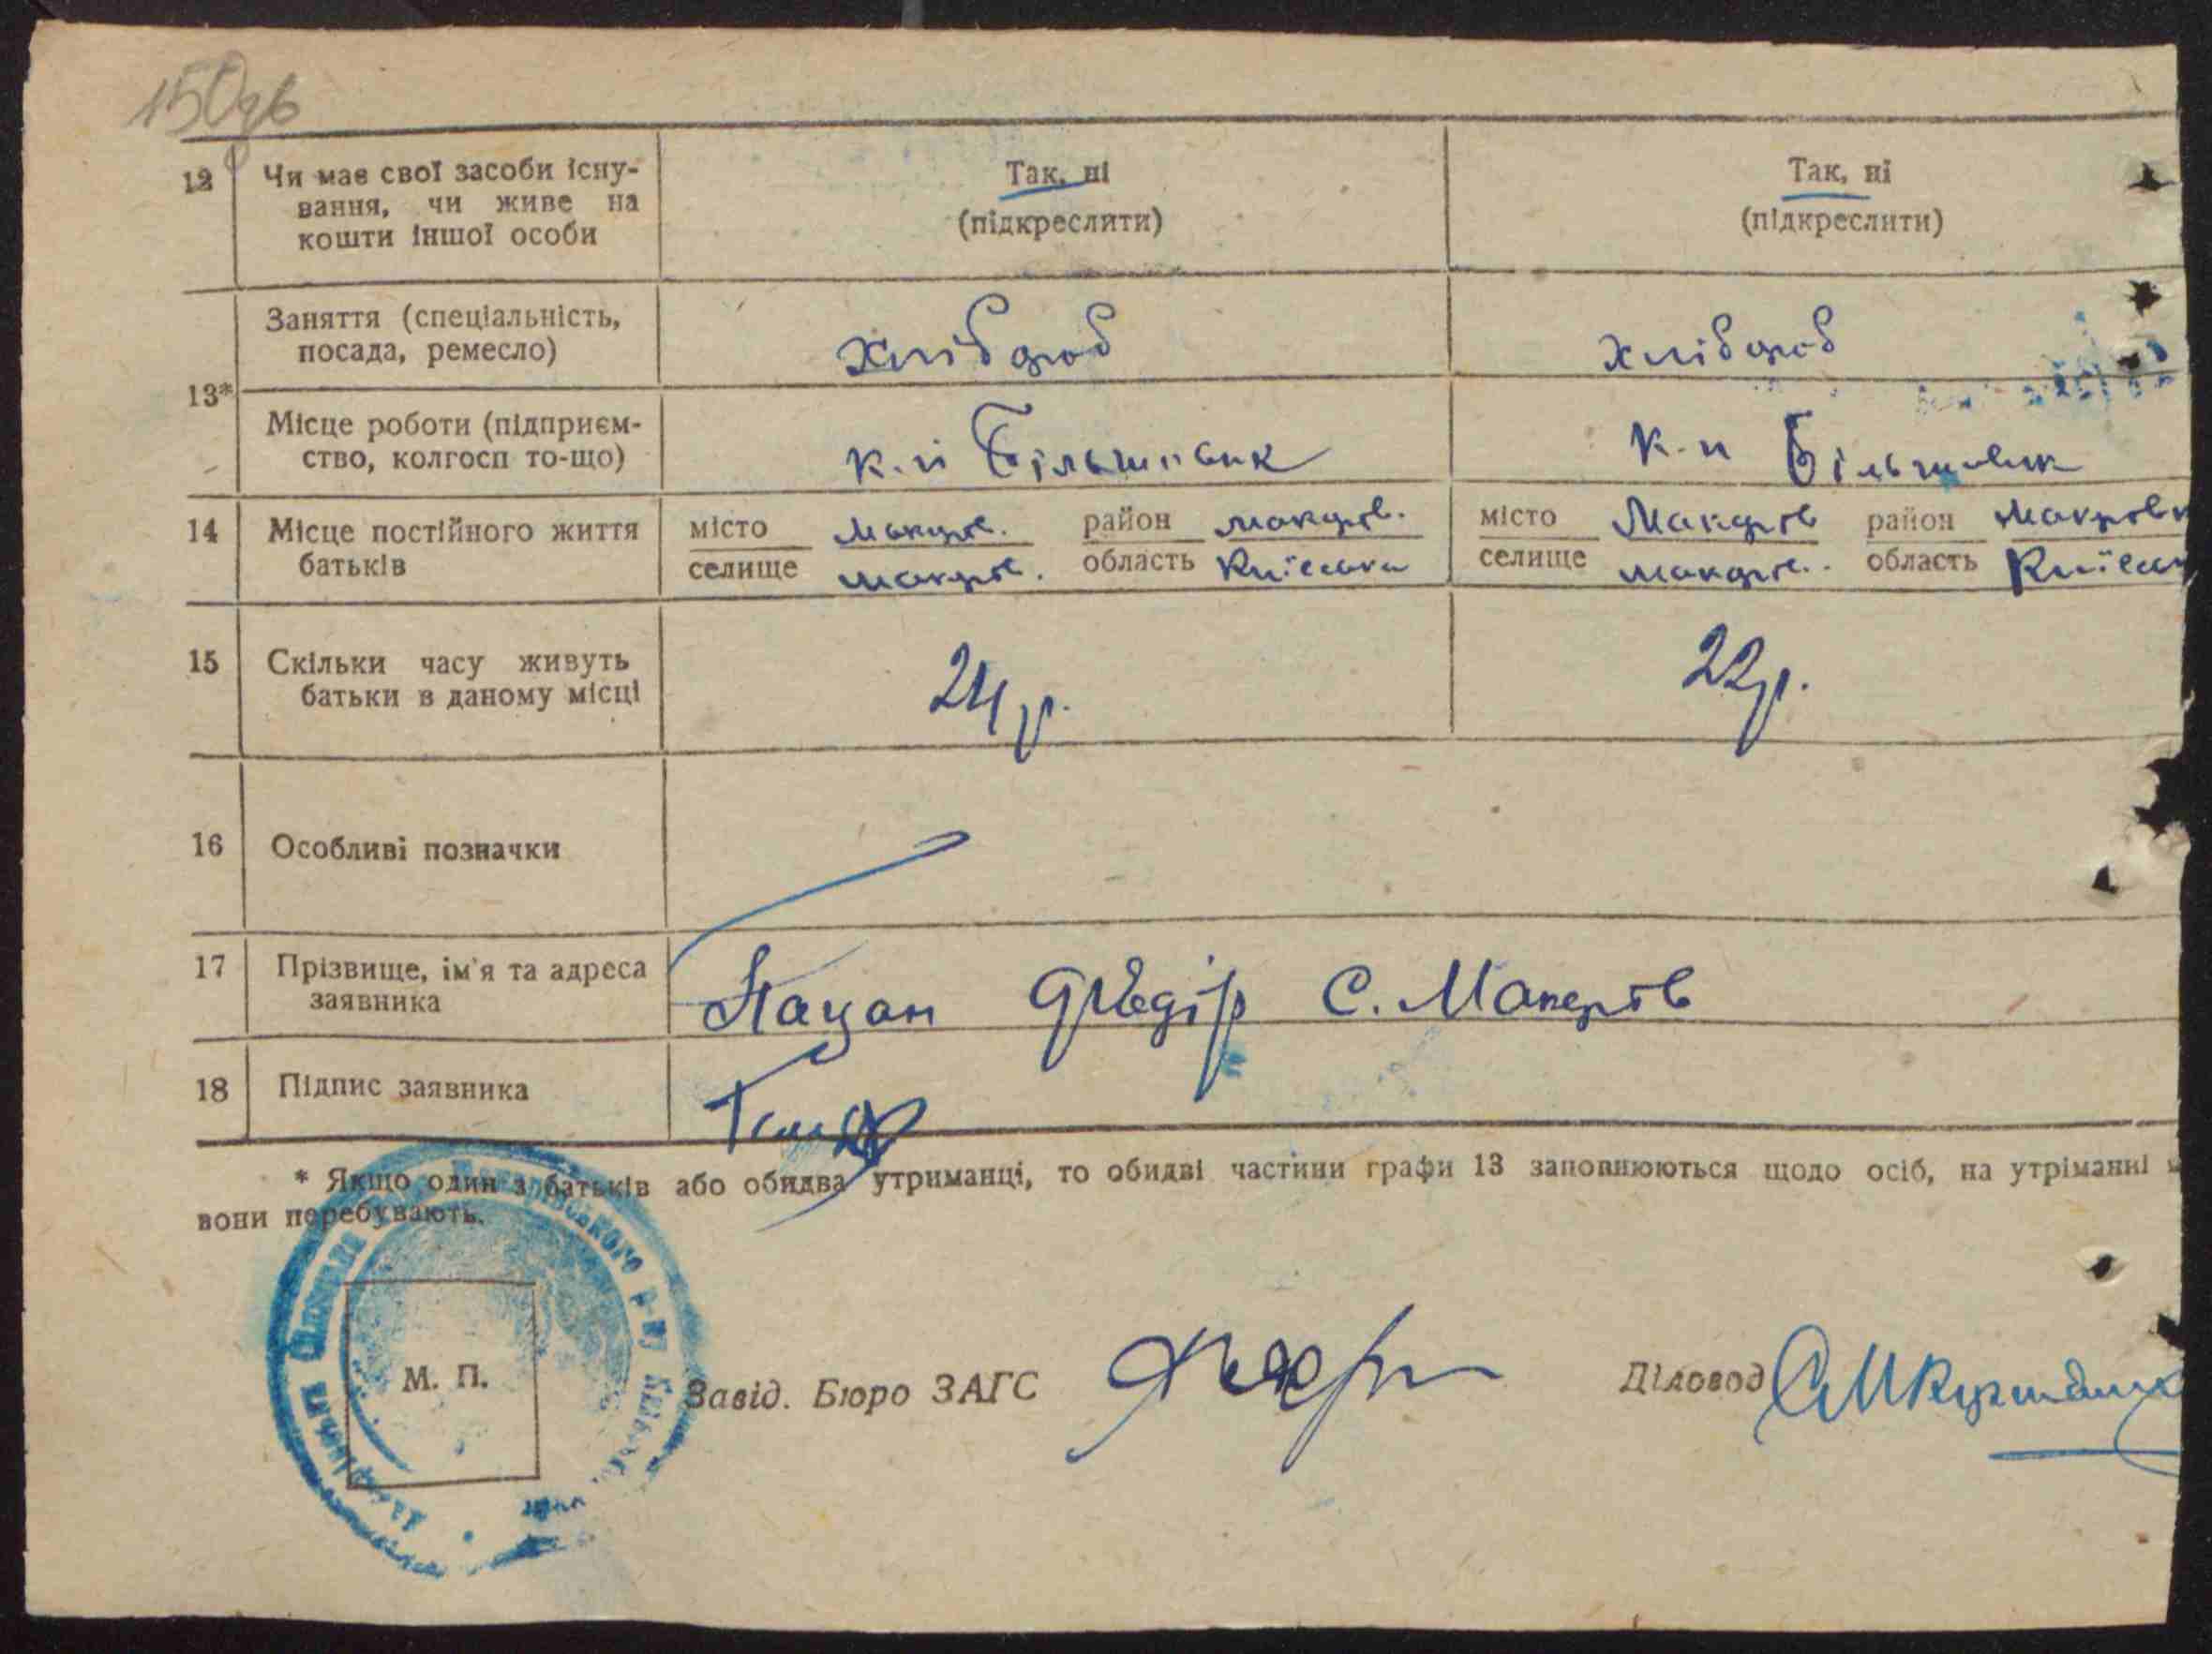 150зв
12 Чи має свої засоби існу-
вання, чи живе на
кошти іншої особи
Так, ні
(підкреслити)
Так, ні
(підкреслити)
13*
Заняття (спеціальність,
посада, ремесло)
хлібороб
хлібороб
Місце роботи (підприєм-
ство, колгосп то-що)
к-п Більшовик
к-п Більшовик
14 Місце постійного життя
батьків
місто Макарів. район Макарів.
селище Макарів. область Київська
місто Макарів район
селище Макарів. область
15 Скільки часу живуть
батьки в даному місці
24 р.
22 р.
16 Особливі позначки
17 Прізвище, ім'я та адреса
заявника
Пацан Федір С. Макарів
18 Підпис заявника
* Якщо один з батьків або обидва утриманці, то обидві частини графи 13 заповнюються щодо осіб, на утріманні
вони перебувають.
М. П.
Завід. Бюро ЗАГС
Діловод